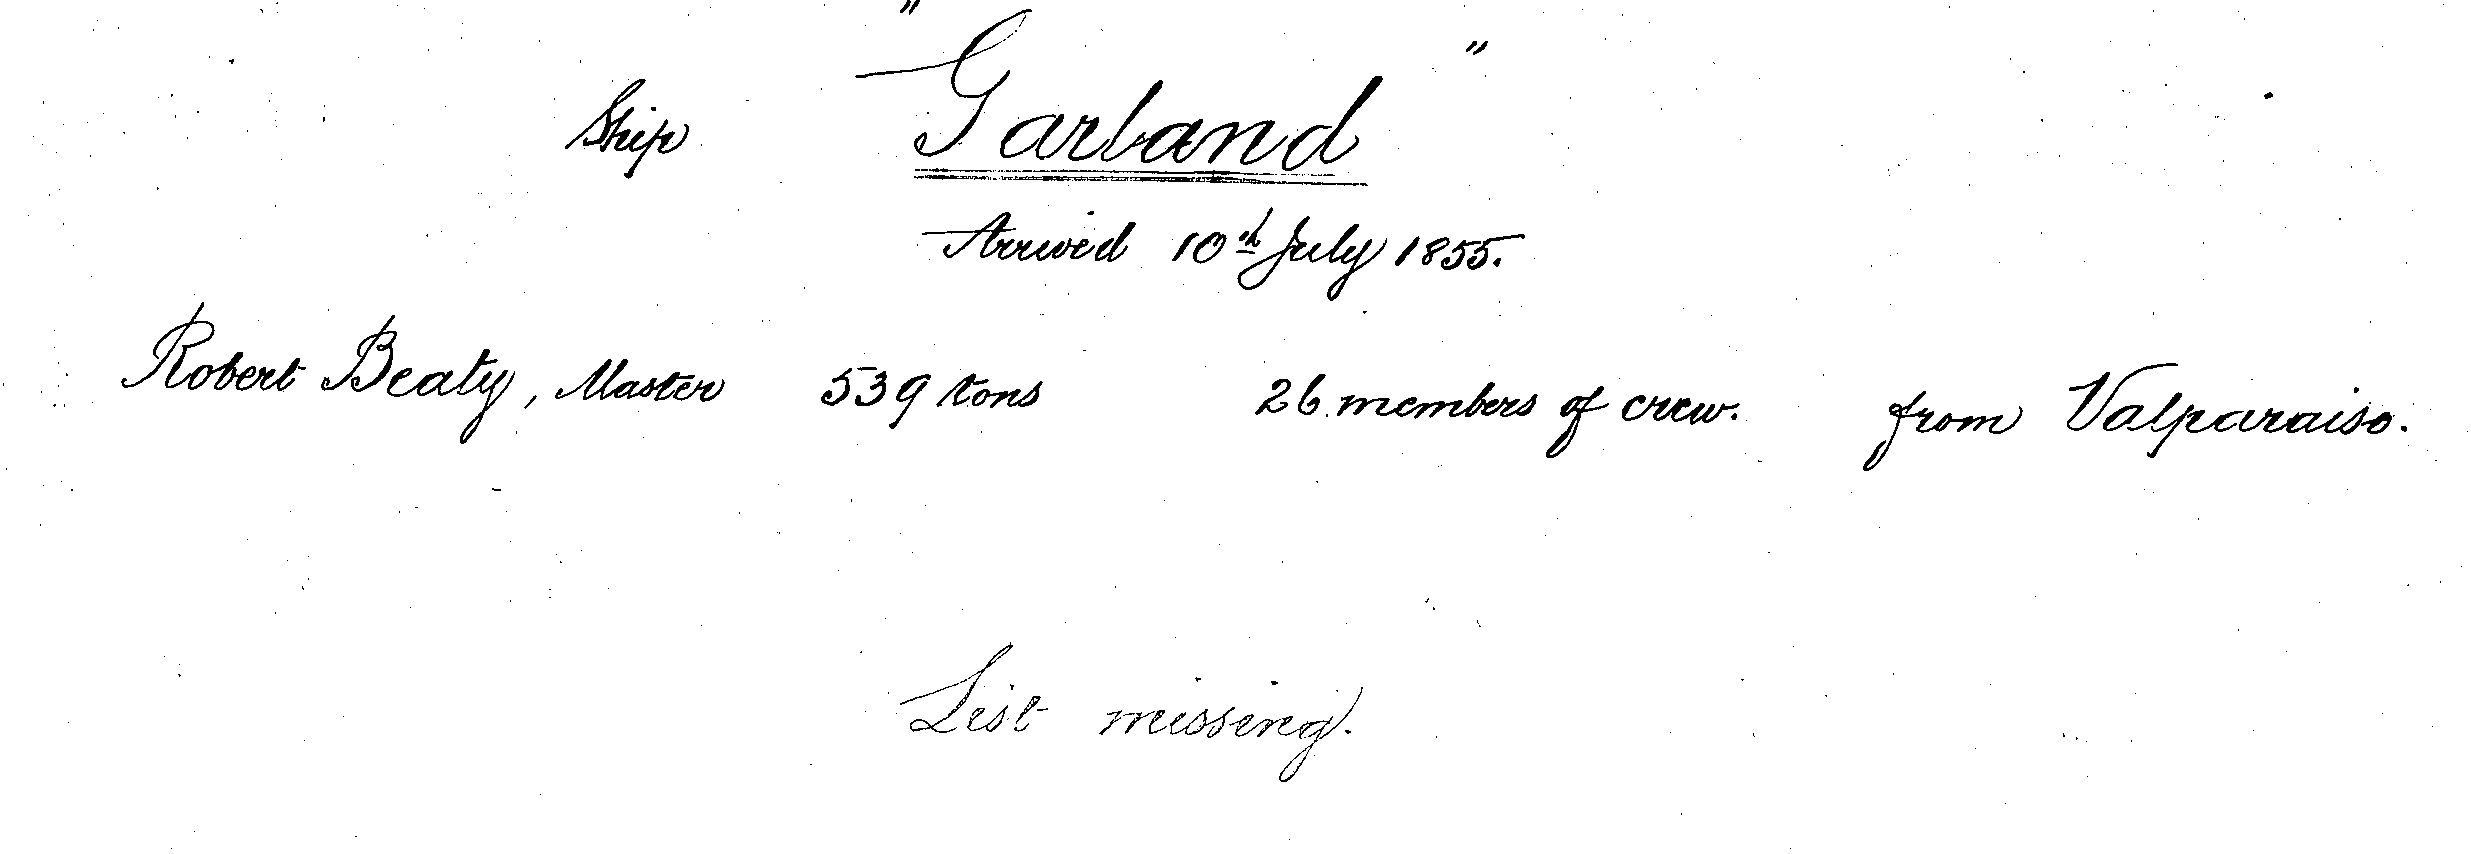 Ship "Garland"
Arrived 10th July 1855.
Robert Beaty, Master 539 tons 26 members of crew. from Valparaiso.
List missing.